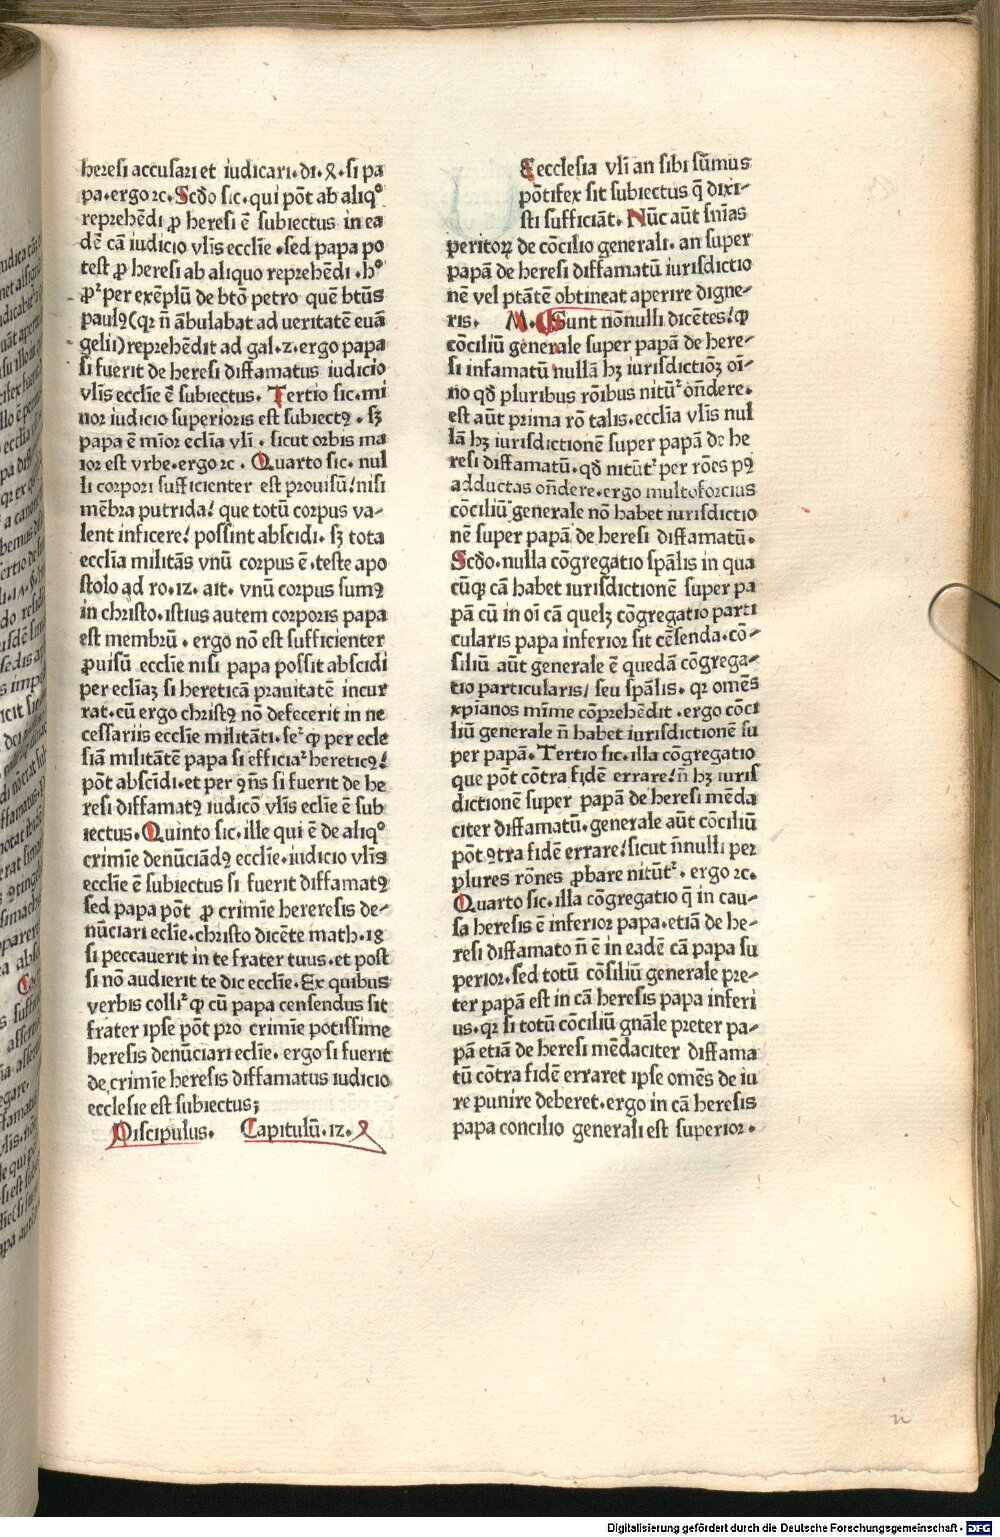 heresi accusari et iudicari.di.⁊.si pa
pa.ergo ⁊c. Scdo sic.qui pōt ab aliqͦ
reprehēdi ꝓ heresi ē subiectus in ea
dē cā iudicio vlis̄ ecclīe .sed papa po
test ꝓ heresi ab aliquo reprehēdi .hͦ
ꝓꝛ per exēplū de btō petro quē btūs
paulꝰ(qꝛ n̄ ābulabat ad ueritatē euā
gelii)reprehēdit ad gal.2.ergo papa
si fuerit de heresi diffamatus iudicio
vlīs ecclīe ē subiectus. Tertio sic.mi
nor iudicio superioris est subiectꝰ . sꝫ
papa ē mīor eclīa vlī . sicut orbis ma
ior est vrbe.ergo ⁊c . Quarto sic. nul
li corpori sufficienter est prouisū!nisi
mēbra putrida! que totū corpus va-
lent inficere! possint abscidi. sꝫ tota
ecclīa militās vnū corpus ē.teste apo
stolo ad ro.12. ait. vnū corpus sumꝰ
in christo.istius autem corporis papa
est membrū . ergo nō est sufficienter
ꝓuisū ecclīe nisi papa possit abscidi
per eclīaꝫ si hereticā prauitatē incur
rat.cū ergo christꝰ nō defecerit in ne
cessariis ecclīe militāti.seꝛ ꝙ per ecle
siā militātē papa si efficiaꝛ hereticꝰ!
pōt abscīdi.et per ꝯn̄s si fuerit de he
resi diffamatꝰ iudicō vlīs eclīe ē sub
iectus.Quinto sic.ille qui ē de aliqͦ
crimīe denūciādꝰ ecclīe.iudicio vlīs
ecclīe ē subiectus si fuerit diffamatꝰ
sed papa pōt ꝓ crimīe hereresis de-
nūciari eclīe.christo dicēte math.18
si peccauerit in te frater tuus.et post
si nō audierit te dic ecclīe.Ex quibus
verbis colliꝛ ꝙ cū papa censendus sit
frater ipse pōt pro crimīe potissime
heresis denūciari eclīe. ergo si fuerit
de crimīe heresis diffamatus iudicio
ecclesie est subiectus;
Discipulus. Capitulū.12.
E ecclesia vlī an sibi sūmus
pōtifex sit subiectus q̄ dixi-
sti sufficiāt. Nūc aūt snīas
peritoꝝ de cōcilio generali. an super
papā de heresi diffamatū iurisdictio
nē vel ptātē obtineat aperire digne-
ris. M. Sunt nōnulli dicētes!ꝙ
cōciliū generale super papā de here-
si infamatū nullā hꝫ iurisdictiōꝫ oī-
no qd̄ pluribus rōibus nitūꝛ ōndere.
est aūt prima rō talis.ecclīa vlīs nul
lā hꝫ iurisdictionē super papā de he
resi diffamatū.qd̄ nitūtꝛ per rōes pꝰ
adductas on̄dere.ergo multoforcius
cōciliū generale nō habet iurisdictio
nē super papā de heresi diffamatū.
Scdo.nulla cōgregatio spālis in qua
cūqꝫ cā habet iurisdictionē super pa
pā cū in oī cā quelꝫ cōgregatio parti
cularis papa inferior sit cēsenda.cō-
siliū aūt generale ē quedā cōgrega-
tio particularis/ seu spālis. qꝛ omēs
xpīanos mīme cōprehēdit .ergo cōci
liū generale n̄ habet iurisdictionē su
per papā. Tertio sic.illa cōgregatio
que pōt cōtra fidē errare!n̄ hꝫ iuris
dictionē super papā de heresi mēda
citer diffamatū.generale aūt cōciliū
pōt ꝯtra fidē errare!sicut n̄nulli per
plures rōnes ꝓbare nitūtꝛ . ergo ⁊c.
Quarto sic.illa cōgregatio q̄ in cau-
sa heresis ē inferior papa.etiā de he-
resi diffamato n̄ ē in eadē cā papa su
perior.sed totū cōsiliū generale pre-
ter papā est in cā heresis papa inferi
us.qꝛ si totū cōciliū gnāle preter pa-
pā etiā de heresi mēdaciter diffama
tū cōtra fidē erraret ipse omēs de iu
re punire deberet.ergo in cā heresis
papa concilio generali est superior.
Digitalisierung gefördert durch die Deutsche Forschungsgemeinschaft - DFG